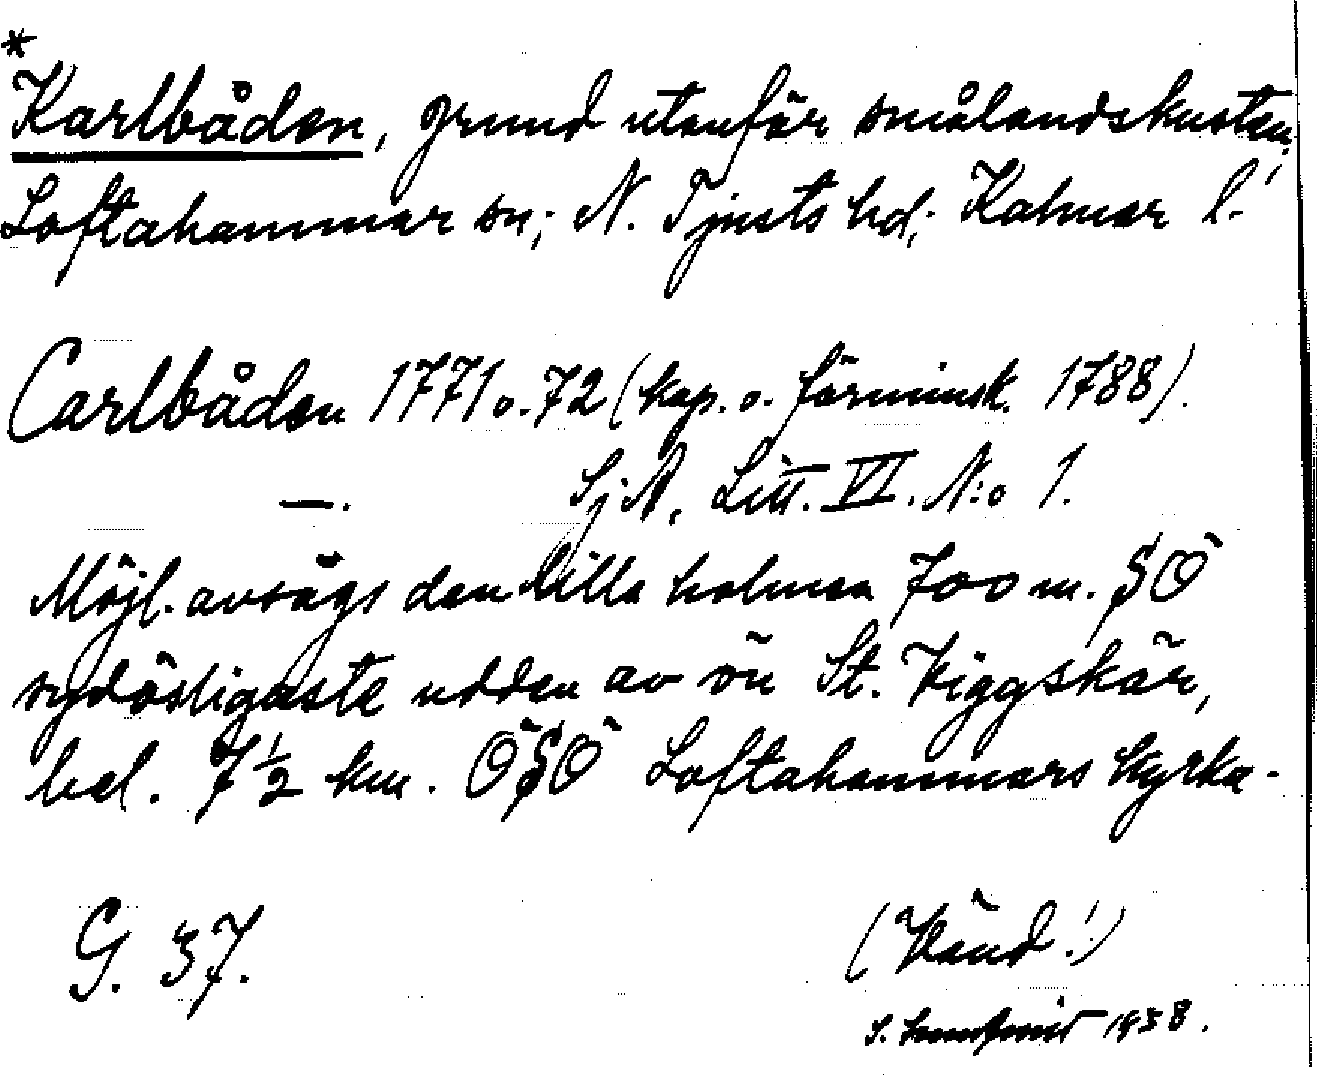 *
Karlbåden, grund utanför smålandskusten;
Loftahammar sn; N. Tjusts hd; Kalmar l.
Carlbåden 1771 o. 72 (kop. o. förminsk. 1788).
—. SjA, Litt. VI. N:o 1.
Möjl. avsågs den lilla holmen 700 m. SÖ
sydöstligaste udden av ön St. Viggskär,
bel. 7 1/2 km. ÖSÖ Loftahammars kyrka.
G. 37.
(Vänd!)
S. 1938.